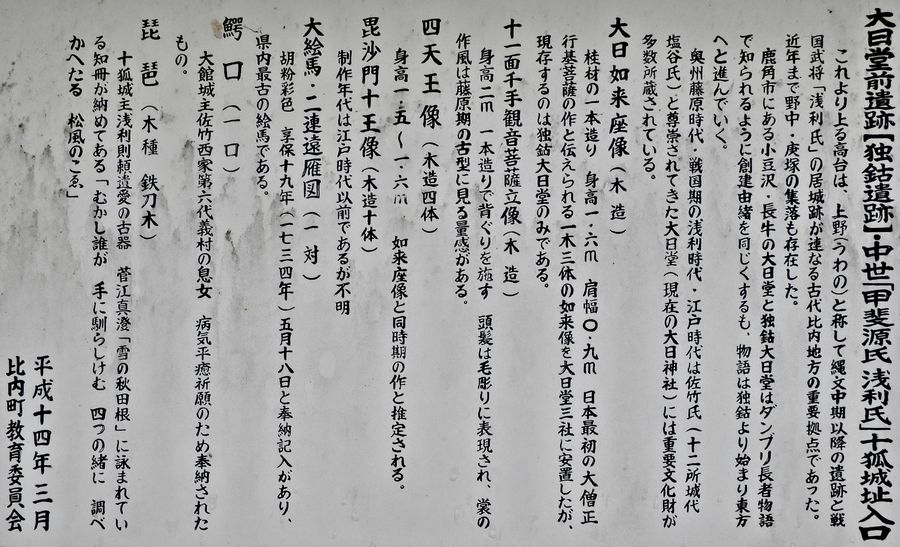 大日堂前遺跡【独鈷遺跡】・中世「甲斐源氏 浅利氏」十狐城址入口
これより上る高台は、上野(うわの)と称して縄文中期以降の遺跡と戦
国武将「浅利氏」の居城跡が連なる古代比内地方の重要拠点であった。
近年まで野中・庚塚の集落も存在した。
鹿角市にある小豆沢・長牛の大日堂と独鈷大日堂はダンブリ長者物語
で知られるように創建由緒を同じくするも、物語は独鈷より始まり東方
へと進んでいく。
奥州藤原時代・戦国期の浅利時代・江戸時代は佐竹氏(十二所城代
塩谷氏)と尊崇されてきた大日堂(現在の大日神社)には重要文化財が
多数所蔵されている。
大日如来座像(木造)
桂材の一本造り 身高一・六m 肩幅〇・九m 日本最初の大僧正
行基菩薩の作と伝えられる一木三体の如来像を大日堂三社に安置したが、
現存するのは独鈷大日堂のみである。
十一面千手観音菩薩立像(木造)
身高二m 一本造りで背ぐりを施す 頭髪は毛彫りに表現され、裳の
作風は藤原期の古型に見る量感がある。
四天王像(木造四体)
身高一・五~一・六m 如来座像と同時期の作と推定される。
毘沙門十王像(木造十体)
制作年代は江戸時代以前であるが不明
大絵馬・二連遠雁図(一対)
胡粉彩色 享保十九年(一七三四年)五月十八日と奉納記入があり、
県内最古の絵馬である。
鰐口(一口)
大館城主佐竹西家第六代義村の息女 病気平癒祈願のため奉納された
もの。
琵琶(木種 鉄刀木)
十狐城主浅利則頼遺愛の古器 菅江真澄「雪の秋田根」に詠まれてい
る知冊が納めてある「むかし誰が 手に馴らしけむ 四つの緒に 調べ
かへたる 松風のこゑ」
平成十四年三月
比内町教育委員会